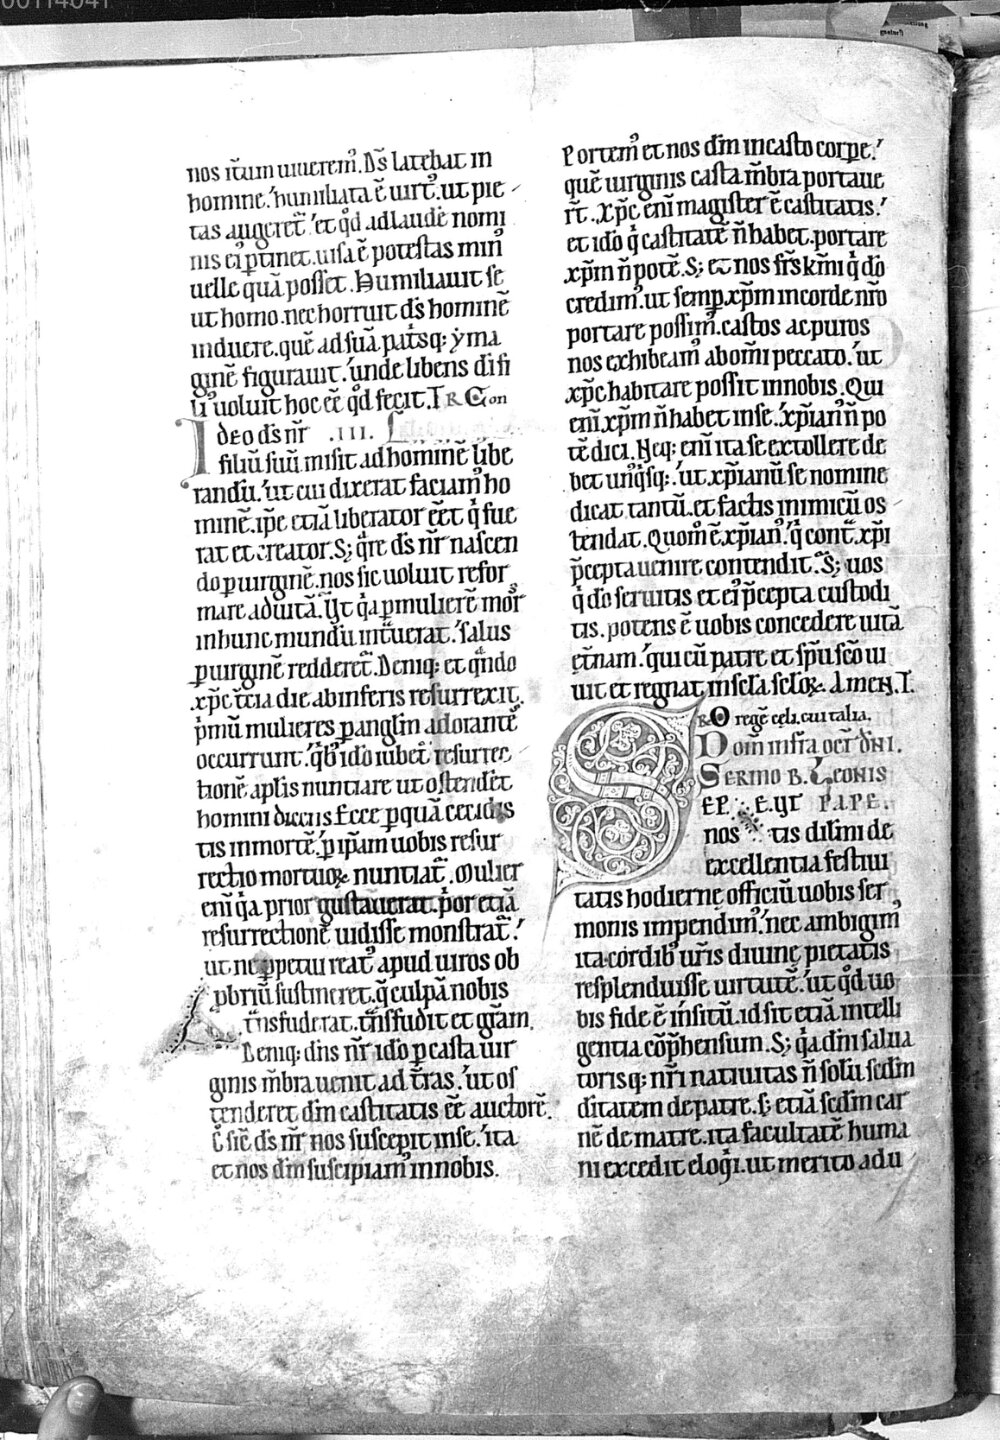 nos itẽum uiuerem᷒. D̅s latebat in
homine. humiliata ẽ uirt᷒. ut pie
tas augeret᷒. et qd̅ ad laudẽ nomi
nis ei᷒ ptinet. uisa ẽ potestas min᷒
uelle quã posset. Humiliauit se
ut homo. nec horruit d̅s hominẽ
induere. quẽ ad suã patsq; yma
ginẽ figurauit. unde libens d̅i fi
li᷒ uoluit hoc eẽ qd̅ fecit. T R Con
Ideo d̅s nr̅ .III.
filiũ suũ misit ad hominẽ libe
randũ. ut cui dixerat faciam᷒ ho
minẽ. ip̅e etiã liberator eẽt q̇ fue
rat et creator. S; q̇re d̅s nr̅ nascen
do p uirginẽ. nos sic uoluit refor
mare ad uitã. Ut q̇a p mulierẽ mor᷒
in hunc mundũ int̃uerat. salus
p uirginẽ redderet᷒. Deniq; et qñdo
xp̅c t̃cia die ab inferis resurrexit.
p̓mũ mulieres p anglm adorantẽ
occurrunt. q̇b᷒ ido iubet᷒ resurrec
tionẽ aplis nuntiare ut ostendẽt
homini dicens Ecce p quã cecidis
tis in mortẽ. p ip̅am uobis resur
rectio mortuoꝝ nuntiat᷒. Mulier
eni q̇a prior gustauerat. p̓or etiã
resurrectionẽ uidisse monstrat᷒.
ut ne ppetui reat᷒ apud uiros ob
pbriũ sustineret. q̃ culpã nobis
t̃nsfuderat. t̃nsfudit et gr̃am.
Deniq; dn̅s nr̅ ido p casta uir
ginis m̃bra uenit ad t̃ras. ut os
tenderet dm̅ castitatis eẽ auctorẽ.
E sic̃ d̅s nr̅ nos suscepit in se. ita
et nos dm̅ suscipiam᷒ in nobis.
Portem᷒ et nos dm̅ in casto corpe.
quẽ uirginis casta m̃bra portaue
rt̅. Xp̅c eni magister ẽ castitatis.
et ido q̇ castitatẽ n̅ habet. portare
xp̅m n̅ potẽ. S; et nos frs̅ kmi q̇ do
credim᷒. ut semp xp̅m in corde nr̅o
portare possim᷒. castos ac puros
nos exhibeam᷒ ab om̅i peccato. ut
xp̅c habitare possit in nobis. Qui
eni xp̅m n̅ habet in se. xp̅ian᷒ n̅ po
tẽ dici. Neq; eni ita se extollere de
bet unq̇sq;. ut xp̅ianũ se nomine
dicat tantũ. et factis inimicũ os
tendat. Quom̅ ẽ xp̅ian᷒. q̇ cont̃ xp̅i
p̅cepta uenire contendit. S; uos
q̇ do seruitis et ei᷒ p̅cepta custodi
tis. potens ẽ uobis concedere uitã
et̃nam. qui cũ patre et sp̅u sc̅o ui
uit et regnat in sc̅la sc̅loꝝ. Amen. T.
R O regẽ celi. cui talia.
Dom̅ infra oct̅ dni.
SERMO B. LEONIS
EP. E.UT PAPE.
nos tis dil̅mi de
excellentia festiui
tatis hodiernę officiũ uobis ser
monis impendim᷒. nec ambigim᷒
ita cordib᷒ ur̅is diuinę pietatis
resplenduisse uirtutẽ. ut qd̅ uo
bis fide ẽ insitũ. id sit etiã intelli
gentia cõp̅hensum. S; q̇a dn̅i salua
torisq; nr̅i natiuitas n̅ solũ scdm̅
ditatem de patre. s; etiã scdm̅ car
nẽ de matre. ita facultatẽ huma
ni excedit eloq̇i. ut merito ad u